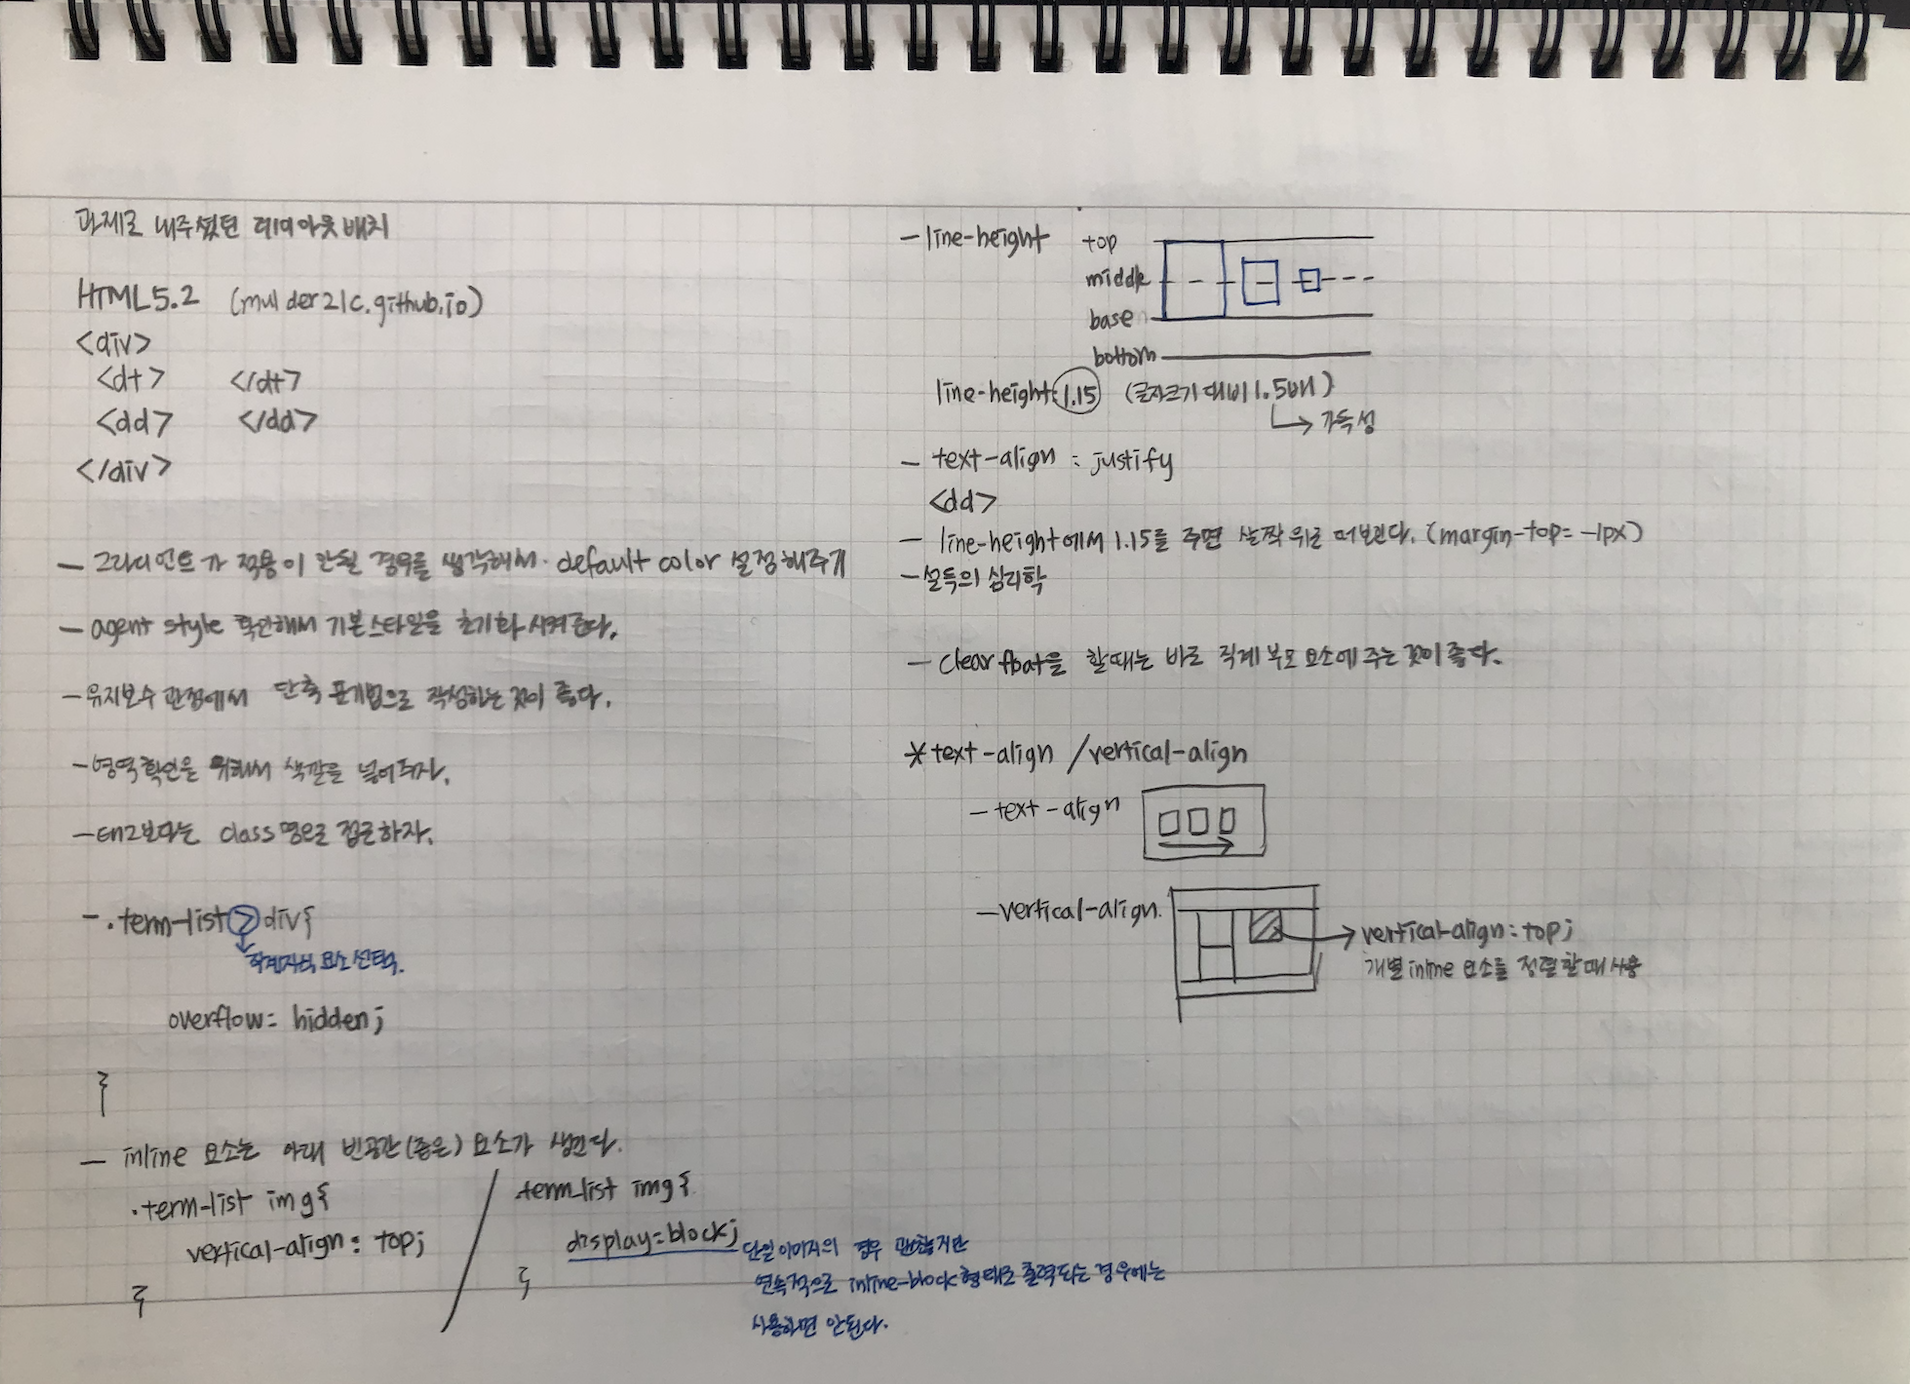 과제로 내주셨던 레이아웃 배치
HTML5.2 (mulder21c.github.io)
<div>
<dt> </dt>
<dd> </dd>
</div>
- 그라디언트가 적용이 안될 경우를 생각해서. default color 설정해주기
- agent style 확인해서 기본스타일을 초기화 시켜준다.
- 유지보수 관점에서 단축 표기법으로 작성하는 것이 좋다.
- 영역확인을 위해서 색깔을 넣어주자.
- 보다는 class명으로 접근하자.
- .term-list > div{
직계자식 요소 선택.
overflow: hidden;
}
- inline 요소는 아래 빈공간(좁은) 요소가 생긴다.
.term-list img{
vertical-align: top;
}
/
.term-list img{
display=block; 단일이미지의 경우 괜찮지만
연속적으로 inline-block 형태로 출력되는 경우에는
사용하면 안된다.
}
- line-height top
middle
base
bottom
line-height: 1.15 (글자크기 대비 1.5배)
→ 가독성
- text-align : justify
<dd>
- line-height에서 1.15를 주면 살짝 위로 떠보인다. (margin-top= -1px)
- 설득의 심리학
- clear float을 할때는 바로 직계 부모 요소에 주는 것이 좋다.
* text-align / vertical-align
- text-align
- vertical-align.
→ vertical-align: top;
개별 inline 요소를 정렬할때 사용